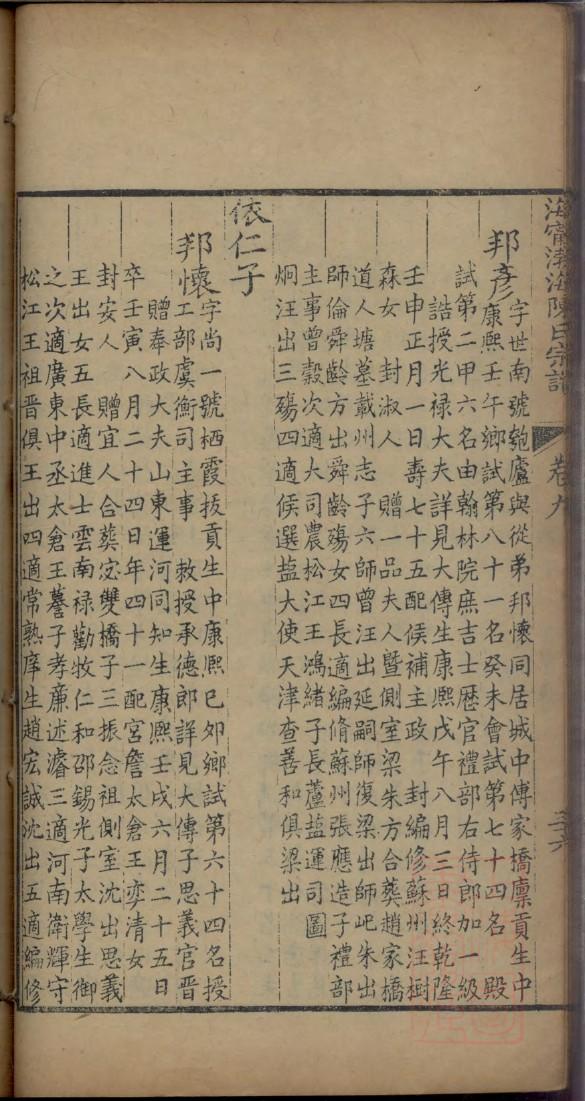 海寧渤海陳氏宗譜
卷九
三六
邦彥字世南號匏廬與從弟邦懷同居城中傳家橋廩貢生中
康熙壬午鄉試第八十一名癸未會試第七十四名 殿
試第二甲六名由翰林院庶吉士歷官禮部右侍郎加一級
誥授光禄大夫詳見大傳生康熙戊午八月三日終乾隆
壬申正月一日壽七十五配侯補主政 封編修蘇州汪樹
森女 封淑人 贈一品夫人暨側室梁朱方合葬趙家橋
道人塘墓載州志子六師曾汪出延嗣師復梁出師屺朱出
師倫舜齡方出舜齡殤女四長適編脩蘇州張應造子禮部
主事曾穀次適大司農松江王鴻緒子長蘆鹽運司圖
炯汪出三殤四適侯選盐大使天津查善和俱梁出
依仁子
邦懷字尚一號栖霞拔貢生中康熙己夘鄉試第六十四名授
工部虞衡司主事 敕授承德郎詳見大傳子思義官晋
贈奉政大夫山東運河同知生康熙壬戌六月二十五日
卒壬寅八月二十四日年四十一配宮詹太倉王奕清女
封安人 贈宜人合葬宓雙橋子三振念祖側室沈出思義
王出女五長適進士雲南禄勸牧仁和邵錫光子太學生御
之次適廣東中丞太倉王謩子孝廉述濬三適河南衛輝守
松江王祖晋俱王出四適常熟庠生趙宏誠沈出五適編修